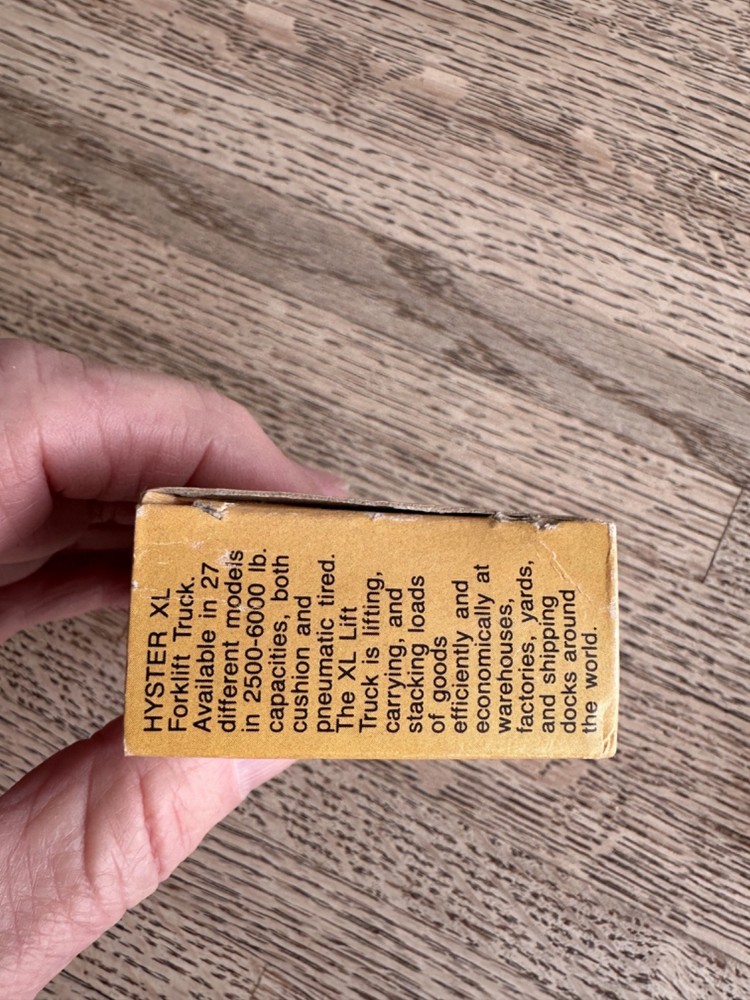 HYSTER XL
Forklift Truck.
Available in 27
different models
in 2500-6000 lb.
capacities, both
cushion and
pneumatic tired.
The XL Lift
Truck is lifting,
carrying, and
stacking loads
of goods
efficiently and
economically at
warehouses,
factories, yards,
and shipping
docks around
the world.